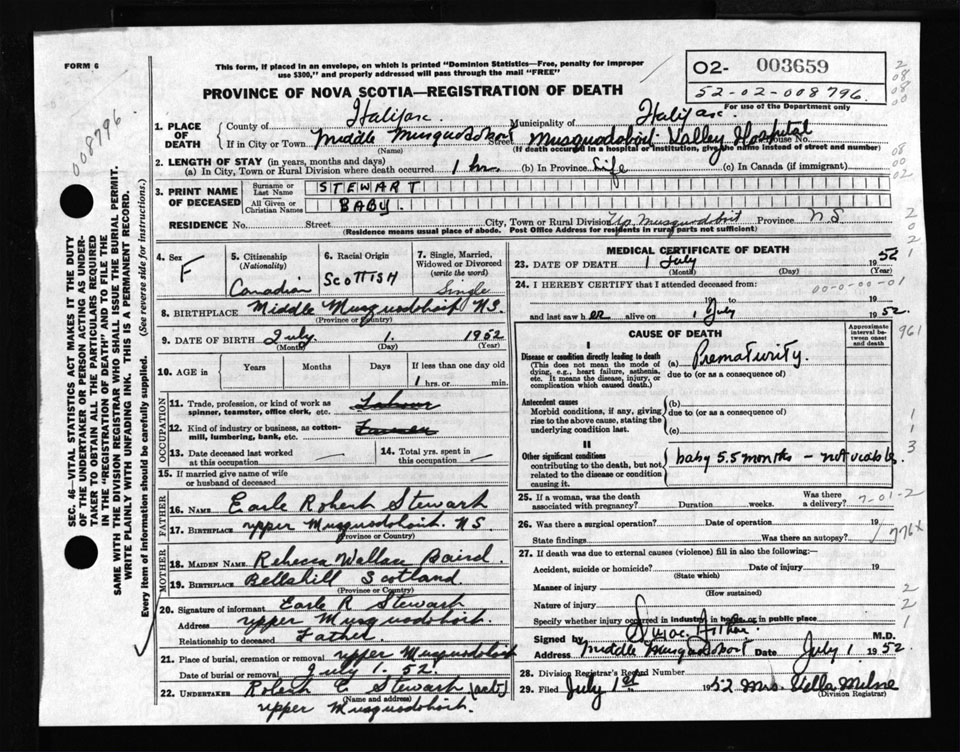 FORM 6
This form, if placed in an envelope, on which is printed "Dominion Statistics—Free, penalty for improper
use $300," and properly addressed will pass through the mail "FREE"
PROVINCE OF NOVA SCOTIA—REGISTRATION OF DEATH
02- 003659
52-02-008796.
For use of the Department only
008796
1. PLACE OF DEATH
County of Halifax Municipality of Halifax
If in City or Town Middle Musquodoboit Street Musquodoboit Valley Hospital House No.
(Name) (If death occurred in a hospital or institution, give the name instead of street and number)
2. LENGTH OF STAY (in years, months and days)
(a) In City, Town or Rural Division where death occurred 1 hr. (b) In Province Life (c) In Canada (if immigrant)
3. PRINT NAME OF DECEASED
Surname or Last Name STEWART
All Given or Christian Names BABY.
RESIDENCE No. Street City, Town or Rural Division Up. Musquodoboit Province N.S
(Residence means usual place of abode. Post Office Address for residents in rural parts not sufficient)
4. Sex F
5. Citizenship (Nationality) Canadian
6. Racial Origin SCOTTISH
7. Single, Married, Widowed or Divorced (write the word) Single
8. BIRTHPLACE Middle Musquodoboit N.S.
(Province or Country)
9. DATE OF BIRTH July 1. 1952
(Month) (Day) (Year)
10. AGE in Years Months Days If less than one day old
1 hrs. or min.
OCCUPATION
11. Trade, profession, or kind of work as spinner, teamster, office clerk, etc. Labour
12. Kind of industry or business, as cotton-mill, lumbering, bank, etc.
13. Date deceased last worked at this occupation —
14. Total yrs. spent in this occupation —
15. If married give name of wife or husband of deceased
FATHER
16. NAME Earle Robert Stewart
17. BIRTHPLACE upper Musquodoboit. N.S.
(Province or Country)
MOTHER
18. MAIDEN NAME Rebecca Wallace Baird.
19. BIRTHPLACE Bellshill Scotland
(Province or Country)
20. Signature of informant Earle R Stewart
Address upper Musquodoboit.
Relationship to deceased Father.
21. Place of burial, cremation or removal upper Musquodoboit
Date of burial or removal July 1. 52.
22. UNDERTAKER Robert E Stewart
(Name and address)
upper Musquodoboit.
MEDICAL CERTIFICATE OF DEATH
23. DATE OF DEATH 1 July 1952
(Month) (Day) (Year)
24. I HEREBY CERTIFY that I attended deceased from:
00-0-00-01
19 to 19
and last saw her alive on 1 July 1952.
CAUSE OF DEATH
Approximate interval between onset and death
961
I
Disease or condition directly leading to death (a) Prematurity.
(This does not mean the mode of dying, e.g., heart failure, asthenia, etc. It means the disease, injury, or complication which caused death.)
due to (or as a consequence of)
Antecedent causes
Morbid conditions, if any, giving rise to the above cause, stating the underlying condition last.
(b)
due to (or as a consequence of)
(c)
II
Other significant conditions contributing to the death, but not related to the disease or condition causing it.
baby 5.5 months — not viable.
25. If a woman, was the death associated with pregnancy? Duration weeks. Was there a delivery? 7-01-2
26. Was there a surgical operation? Date of operation 19
State findings Was there an autopsy?
776x
27. If death was due to external causes (violence) fill in also the following:—
Accident, suicide or homicide? Date of injury 19
(State which)
Manner of injury
(How sustained)
Nature of injury
Specify whether injury occurred in industry, in home, or in public place
Signed by M.D.
Address Middle Musquodoboit Date July 1 1952.
28. Division Registrar's Record Number
29. Filed July 1st 1952 Mrs. Stella Milne
(Division Registrar)
SEC. 46—VITAL STATISTICS ACT MAKES IT THE DUTY
OF THE UNDERTAKER OR PERSON ACTING AS UNDER-
TAKER TO OBTAIN ALL THE PARTICULARS REQUIRED
IN THE "REGISTRATION OF DEATH" AND TO FILE THE
SAME WITH THE DIVISION REGISTRAR WHO SHALL ISSUE THE BURIAL PERMIT.
WRITE PLAINLY WITH UNFADING INK. THIS IS A PERMANENT RECORD.
Every item of information should be carefully supplied. (See reverse side for instructions.)